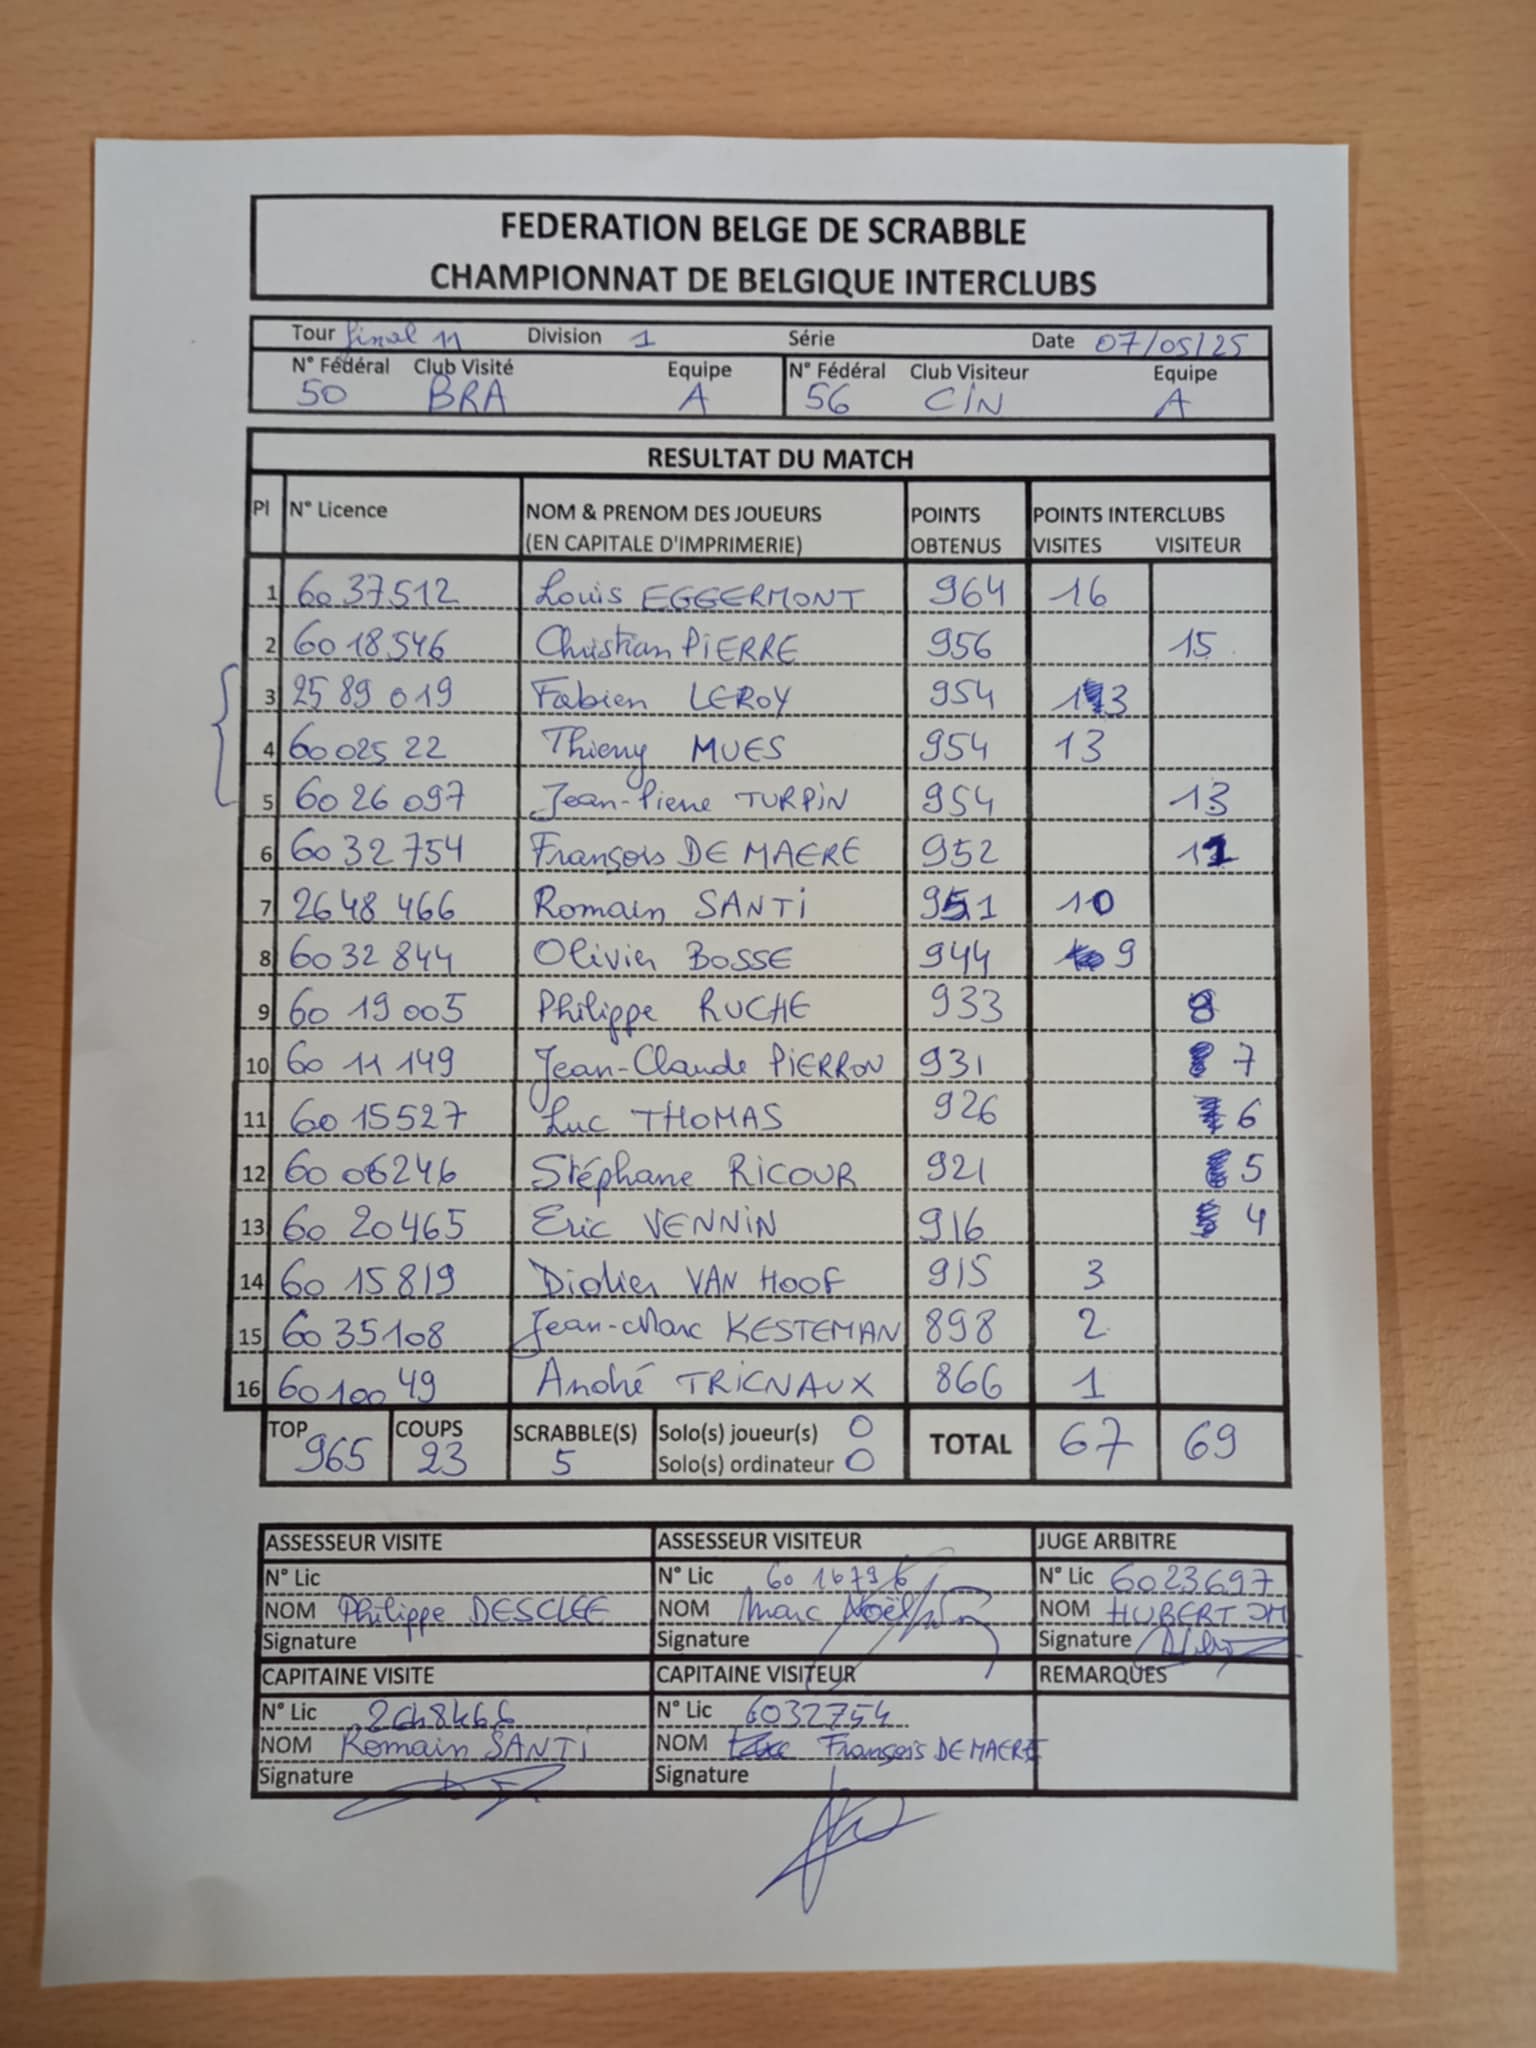 FEDERATION BELGE DE SCRABBLE
CHAMPIONNAT DE BELGIQUE INTERCLUBS
Tour final 11 Division 1 Série Date 07/05/25
N° Fédéral Club Visité Equipe N° Fédéral Club Visiteur Equipe
50 BRA A 56 CIN A
RESULTAT DU MATCH
Pl N° Licence NOM & PRENOM DES JOUEURS POINTS POINTS INTERCLUBS
(EN CAPITALE D'IMPRIMERIE) OBTENUS VISITES VISITEUR
1 60 37512 Louis EGGERMONT 964 16
2 60 18546 Christian PIERRE 956 15
3 25 89 019 Fabien LEROY 954 13
4 60 025 22 Thierry MUES 954 13
5 60 26 097 Jean-Pierre TURPIN 954 13
6 60 32 754 François DE MAERE 952 11
7 26 48 466 Romain SANTI 951 10
8 60 32 844 Olivier BOSSE 944 9
9 60 19 005 Philippe RUCHE 933 8
10 60 11 149 Jean-Claude PIERRON 931 7
11 60 15527 Luc THOMAS 926 6
12 60 06246 Stéphane RICOUR 921 5
13 60 20465 Eric VENNIN 916 4
14 60 15819 Didier VAN HOOF 915 3
15 60 35108 Jean-Marc KESTEMAN 898 2
16 60 100 49 André TRICNAUX 866 1
TOP COUPS SCRABBLE(S) Solo(s) joueur(s) 0 TOTAL 67 69
965 23 5 Solo(s) ordinateur 0
ASSESSEUR VISITE ASSESSEUR VISITEUR JUGE ARBITRE
N° Lic N° Lic 60 16796 N° Lic 6023697
NOM Philippe DESCLEE NOM Marc Noël NOM HUBERT JM
Signature Signature Signature
CAPITAINE VISITE CAPITAINE VISITEUR REMARQUES
N° Lic 2648466 N° Lic 6032754
NOM Romain SANTI NOM François DE MAERE
Signature Signature